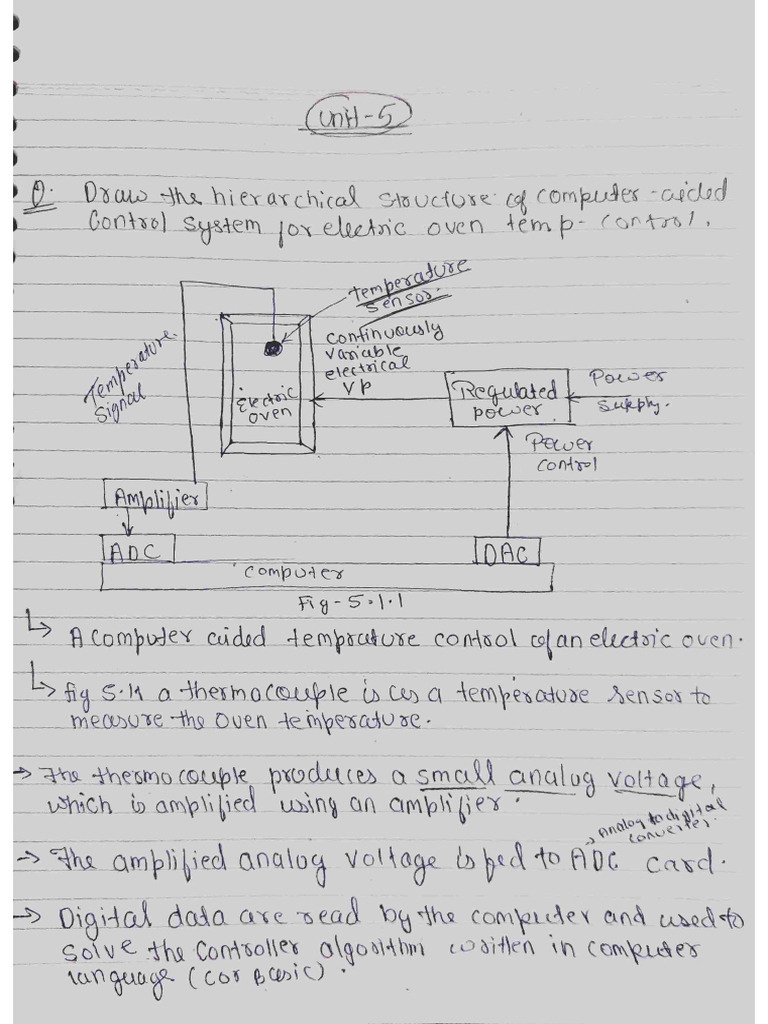 Unit-5
Q. Draw the hierarchical structure of computer-aided
Control system for electric oven temp- control.
temperature
sensor.
Temperature
Signal
continuously
variable
electrical
VP
Electric
oven
Regulated
power
Power
supply.
Power
control
Amplifier
ADC
DAC
computer
Fig-5.1.1
↳ A computer aided temprature control of an electric oven.
↳ fig 5.11 a thermocouple is as a temperature sensor to
measure the oven temperature.
→ The thermocouple produces a small analog voltage,
which is amplified using an amplifier.
→ Analog to digital
converter.
→ The amplified analog voltage is fed to ADC card.
→ Digital data are read by the computer and used to
solve the controller algorithm written in computer
language (C or Basic).